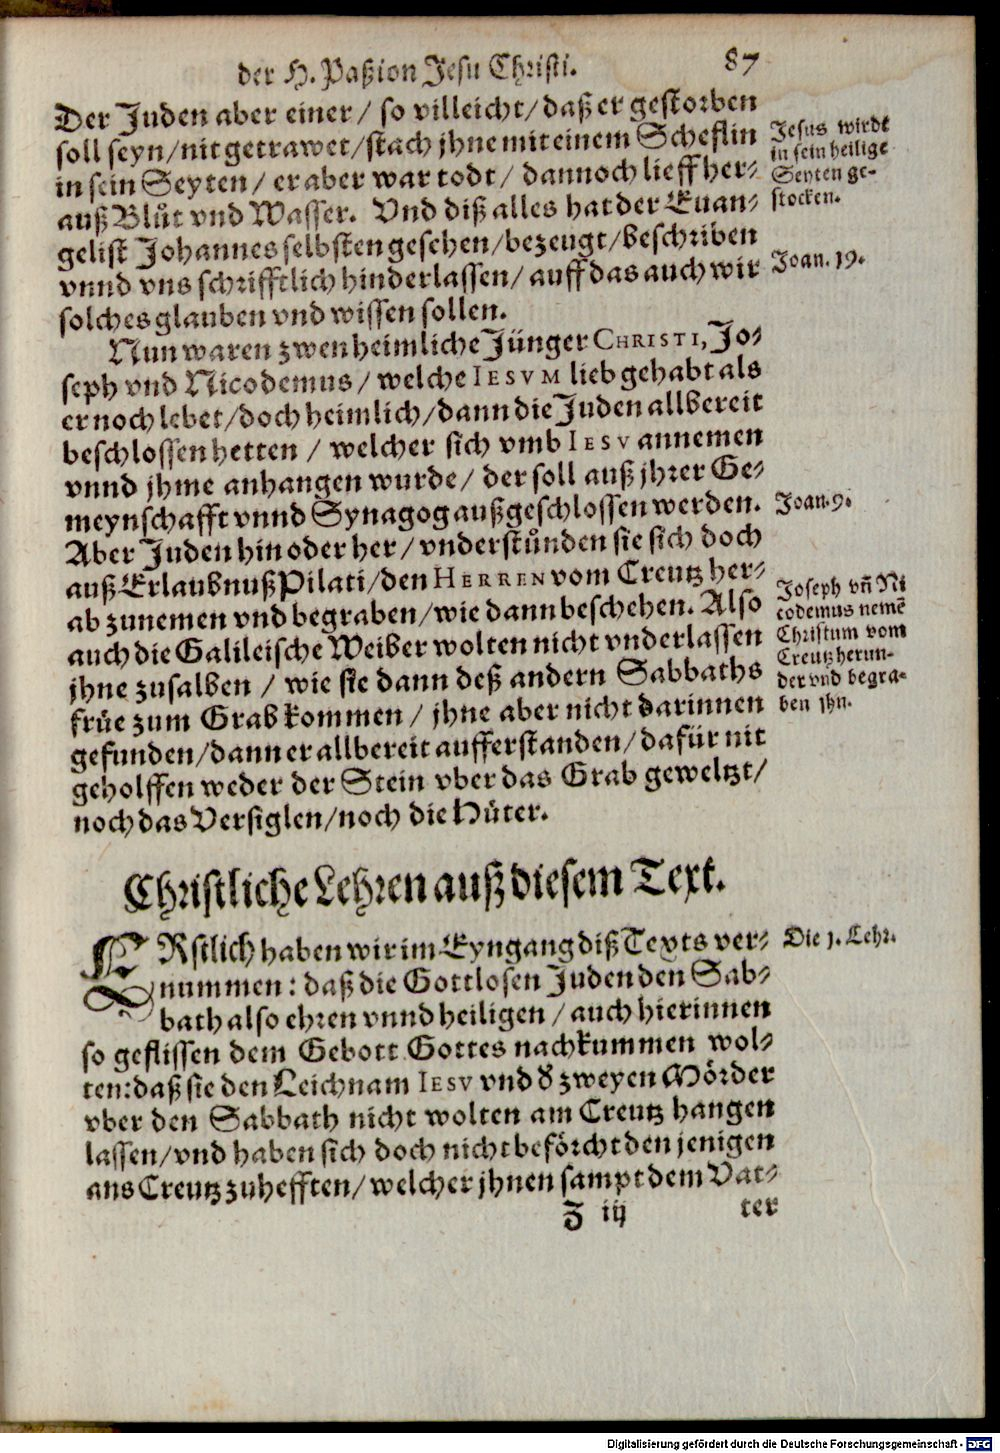 der H. Paßion Jesu Christi. 87
Der Juden aber einer / so villeicht / daß er gestorben
soll seyn / nit getrawet / stach jhne mit einem Scheflin
in sein Seyten / er aber war todt / dannoch lieff her-
auß Blůt vnd Wasser. Vnd diß alles hat der Euan-
gelist Johannes selbsten gesehen / bezeugt / beschriben
vnnd vns schrifftlich hinderlassen / auff das auch wir
solches glauben vnd wissen sollen.
Jesus wirdt
in sein heilige
Seyten ge-
stochen.
Joan. 19.
Nun waren zwen heimliche Jünger CHRISTI, Jo-
seph vnd Nicodemus / welche IESVM lieb gehabt als
er noch lebet / doch heimlich / dann die Juden allbereit
beschlossen hetten / welcher sich vmb IESV annemen
vnnd jhme anhangen wurde / der soll auß jhrer Ge-
meynschafft vnnd Synagog außgeschlossen werden.
Aber Juden hin oder her / vnderstůnden sie sich doch
auß Erlaubnuß Pilati / den HERREN vom Creutz her-
ab zunemen vnd begraben / wie dann beschehen. Also
auch die Galileische Weiber wolten nicht vnderlassen
jhne zusalben / wie sie dann deß andern Sabbaths
frůe zum Grab kommen / jhne aber nicht darinnen
gefunden / dann er allbereit aufferstanden / dafür nit
geholffen weder der Stein vber das Grab geweltzt /
noch das Versiglen / noch die Hůter.
Joan. 9.
Joseph vn̄ Ni
codemus nemē
Christum vom
Creutz herun-
der vnd begra-
ben jhn.
Christliche Lehren auß diesem Text.
ERstlich haben wir im Eyngang diß Texts ver-
nummen: daß die Gottlosen Juden den Sab-
bath also ehren vnnd heiligen / auch hierinnen
so geflissen dem Gebott Gottes nachkummen wol-
ten: daß sie den Leichnam IESV vnd d' zweyen Mörder
vber den Sabbath nicht wolten am Creutz hangen
lassen / vnd haben sich doch nicht beförcht den jenigen
ans Creutz zuhefften / welcher jhnen sampt dem Vat-
Die 1. Lehr.
Z iij ter
Digitalisierung gefördert durch die Deutsche Forschungsgemeinschaft - DFG